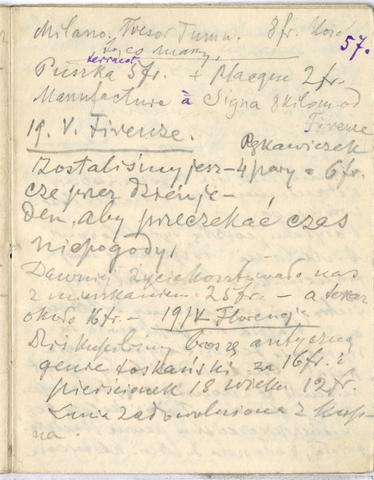 Milano. Tresor Tumn. 8 fr.
57.
co mamy,
terracot
Puszka 5 fr. + Plaque 2 fr.
Manufacture à Signa 8 kilom. od
Firenze
19. V. Firenze.
Rękawiczek
Zostaliśmy jesz- 4 pary = 6 fr.
cze przez dzień je-
den, aby przeczekać czas
niepogody,
Dawniej życie kosztowało nas
z mieszkaniem 25 fr. - a teraz
około 16 fr. - 19/V. Florencja
Dziś kupiliśmy broszę antyczną
toskański za 16 fr. i
pierścionek 18 wieku 12 fr.
zadowolniona z kup-
na.